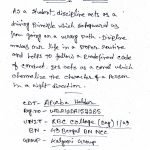 As a student, discipline acts as a
driving principle which safeguard us
from going on a wrong path. Discipline
makes our life in a proper routine
and helps to follow a predefined code
of conduct. It acts as a canal which
channelise the character of a person
in a right direction.
CDT -
REGT NO -
UNIT - RBC College (Eng) 1/49
BN - 49 Bengal BN NCC
Group - Kalyani Group